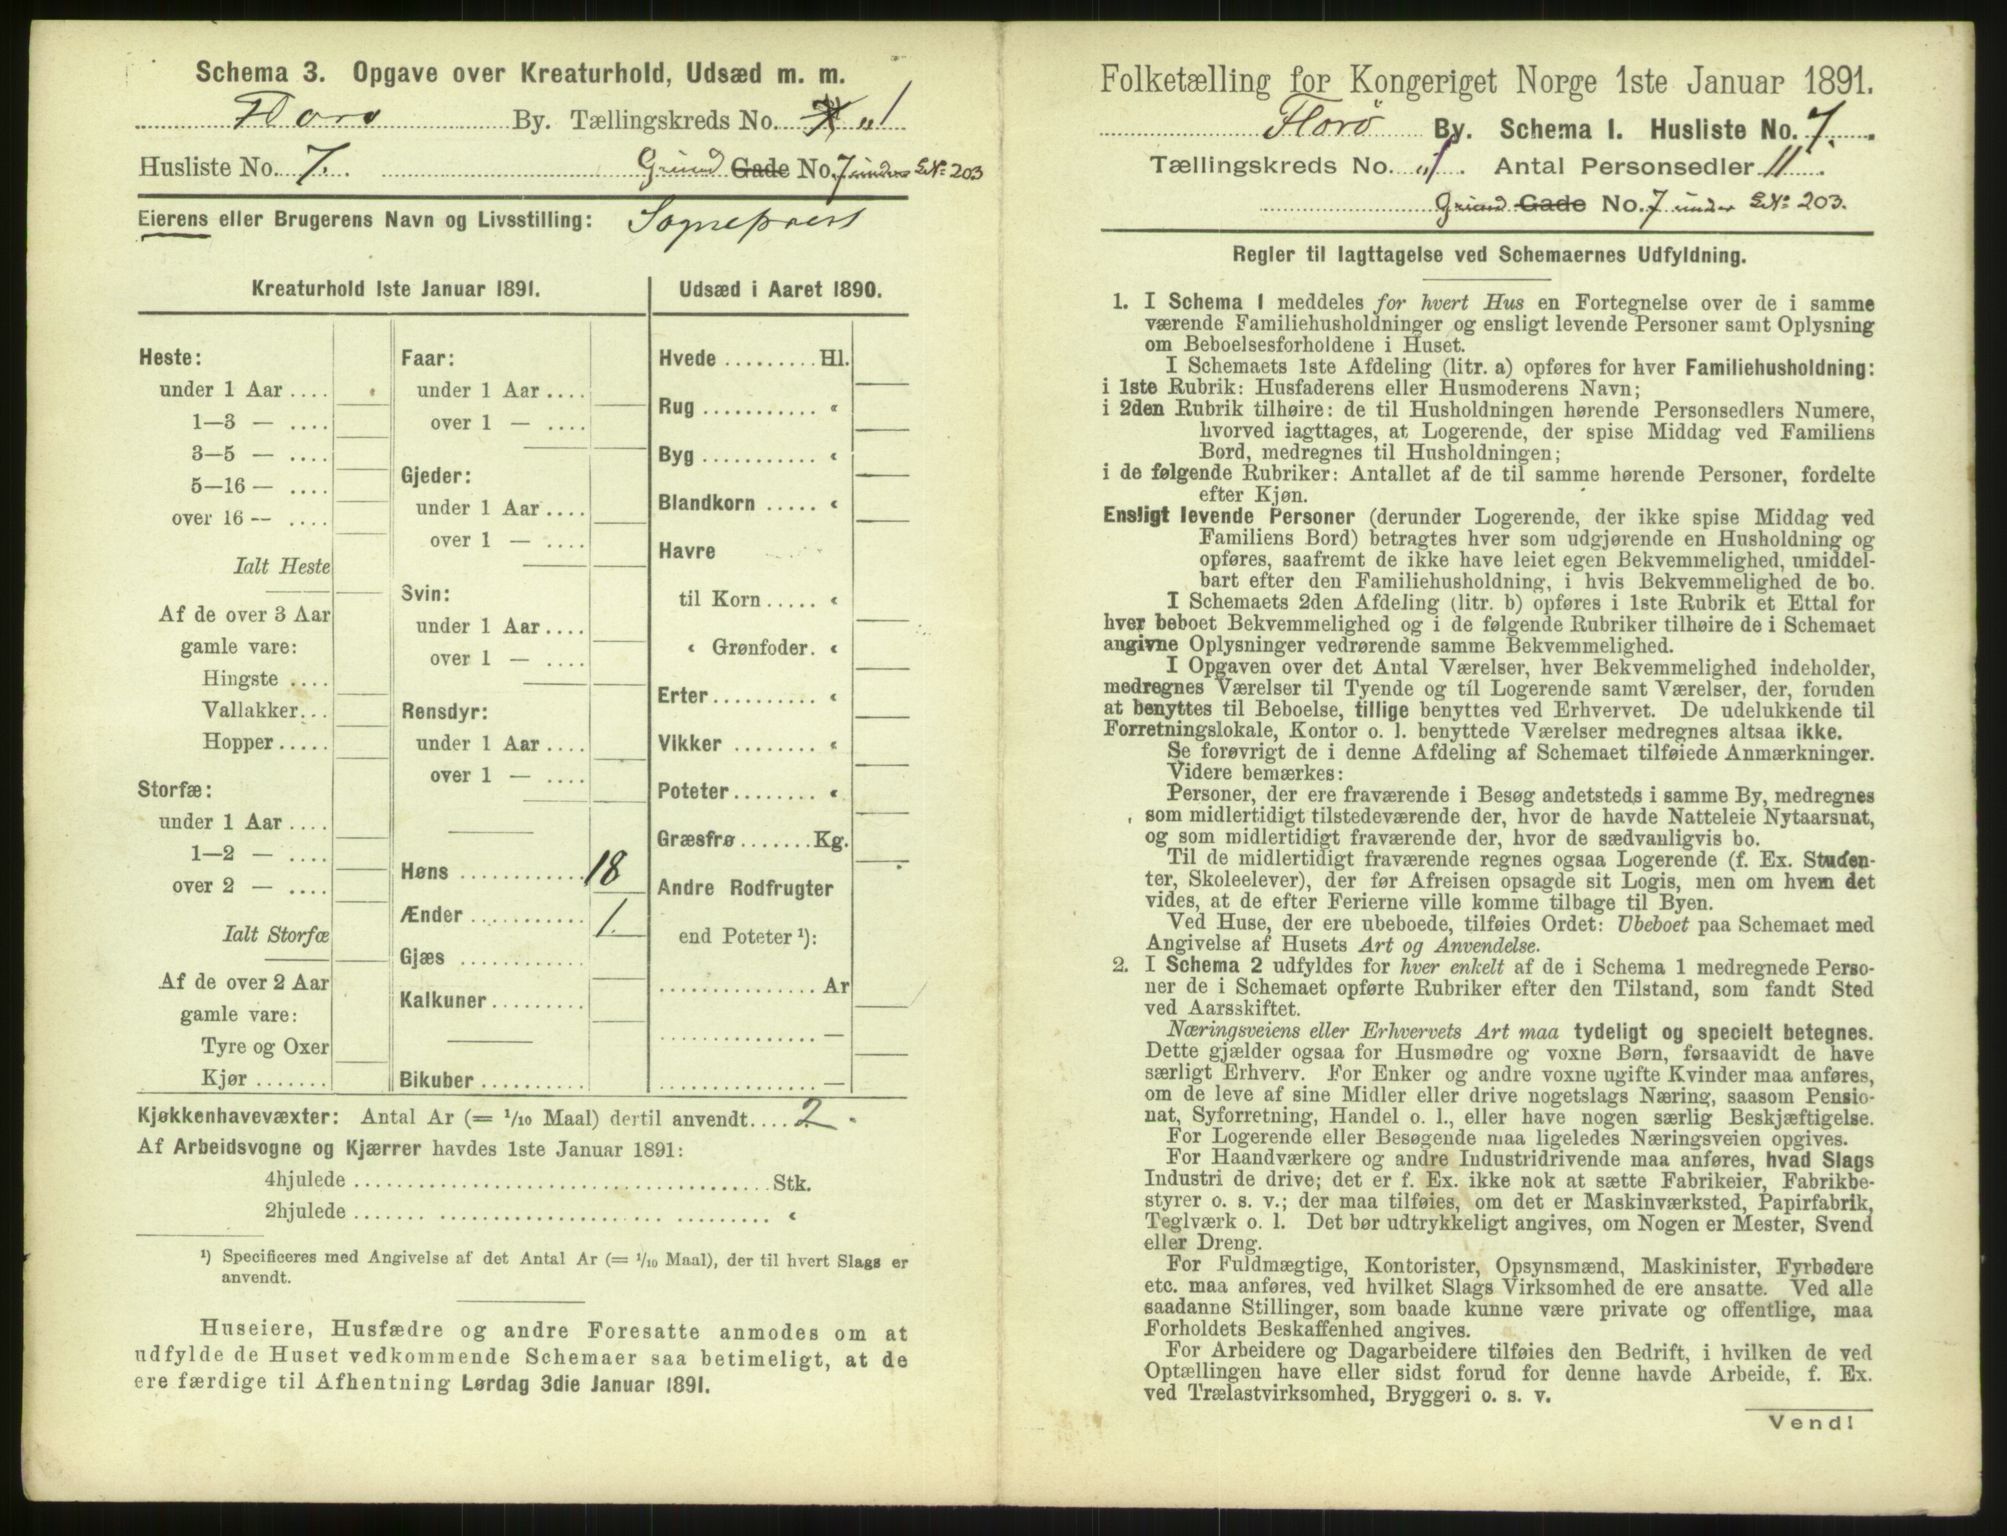 Schema 3. Opgave over Kreaturhold, Udsæd m. m.
Florø By. Tællingskreds No. 1
Husliste No. 7. Grund Gade No. 7 under G.No. 203
Eierens eller Brugerens Navn og Livsstilling: Sogneprest
Kreaturhold 1ste Januar 1891.
Heste:
under 1 Aar ....
1—3 — ....
3—5 — ....
5—16 — ....
over 16 — ....
Ialt Heste
Af de over 3 Aar
gamle vare:
Hingste ....
Vallakker...
Hopper.....
Storfæ:
under 1 Aar ....
1—2 — ....
over 2 — ....
Ialt Storfæ
Af de over 2 Aar
gamle vare:
Tyre og Oxer
Kjør .......
Faar:
under 1 Aar ....
over 1 — ....
Gjeder:
under 1 Aar ....
over 1 — ....
Svin:
under 1 Aar ....
over 1 — ....
Rensdyr:
under 1 Aar ....
over 1 — ....
Høns ........... 18
Ænder .......... 1.
Gjæs ...........
Kalkuner........
Bikuber.........
Udsæd i Aaret 1890.
Hvede ......... Hl.
Rug ........... «
Byg ........... «
Blandkorn ..... «
Havre
til Korn ..... «
« Grønfoder. «
Erter ......... «
Vikker ........ «
Poteter ....... «
Græsfrø ....... Kg.
Andre Rodfrugter
end Poteter ¹):
............... Ar
............... —
............... —
Kjøkkenhavevæxter: Antal Ar (= 1/10 Maal) dertil anvendt.... 2
Af Arbeidsvogne og Kjærrer havdes 1ste Januar 1891:
4hjulede ...................................... Stk.
2hjulede ...................................... «
¹) Specificeres med Angivelse af det Antal Ar (= 1/10 Maal), der til hvert Slags er
anvendt.
Huseiere, Husfædre og andre Foresatte anmodes om at
udfylde de Huset vedkommende Schemaer saa betimeligt, at de
ere færdige til Afhentning Lørdag 3die Januar 1891.
Folketælling for Kongeriget Norge 1ste Januar 1891.
Florø By. Schema 1. Husliste No. 7.
Tællingskreds No. 1. Antal Personsedler 11.
Grund Gade No. 7 under G.No. 203.
Regler til Iagttagelse ved Schemaernes Udfyldning.
1. I Schema 1 meddeles for hvert Hus en Fortegnelse over de i samme
værende Familiehusholdninger og ensligt levende Personer samt Oplysning
om Beboelsesforholdene i Huset.
I Schemaets 1ste Afdeling (litr. a) opføres for hver Familiehusholdning:
i 1ste Rubrik: Husfaderens eller Husmoderens Navn;
i 2den Rubrik tilhøire: de til Husholdningen hørende Personsedlers Numere,
hvorved iagttages, at Logerende, der spise Middag ved Familiens
Bord, medregnes til Husholdningen;
i de følgende Rubriker: Antallet af de til samme hørende Personer, fordelte
efter Kjøn.
Ensligt levende Personer (derunder Logerende, der ikke spise Middag ved
Familiens Bord) betragtes hver som udgjørende en Husholdning og
opføres, saafremt de ikke have leiet egen Bekvemmelighed, umiddel-
bart efter den Familiehusholdning, i hvis Bekvemmelighed de bo.
I Schemaets 2den Afdeling (litr. b) opføres i 1ste Rubrik et Ettal for
hver beboet Bekvemmelighed og i de følgende Rubriker tilhøire de i Schemaet
angivne Oplysninger vedrørende samme Bekvemmelighed.
I Opgaven over det Antal Værelser, hver Bekvemmelighed indeholder,
medregnes Værelser til Tyende og til Logerende samt Værelser, der, foruden
at benyttes til Beboelse, tillige benyttes ved Erhvervet. De udelukkende til
Forretningslokale, Kontor o. l. benyttede Værelser medregnes altsaa ikke.
Se forøvrigt de i denne Afdeling af Schemaet tilføiede Anmærkninger.
Videre bemærkes:
Personer, der ere fraværende i Besøg andetsteds i samme By, medregnes
som midlertidigt tilstedeværende der, hvor de havde Natteleie Nytaarsnat,
og som midlertidigt fraværende der, hvor de sædvanligvis bo.
Til de midlertidigt fraværende regnes ogsaa Logerende (f. Ex. Studen-
ter, Skoleelever), der før Afreisen opsagde sit Logis, men om hvem det
vides, at de efter Ferierne ville komme tilbage til Byen.
Ved Huse, der ere ubeboede, tilføies Ordet: Ubeboet paa Schemaet med
Angivelse af Husets Art og Anvendelse.
2. I Schema 2 udfyldes for hver enkelt af de i Schema 1 medregnede Perso-
ner de i Schemaet opførte Rubriker efter den Tilstand, som fandt Sted
ved Aarsskiftet.
Næringsveiens eller Erhvervets Art maa tydeligt og specielt betegnes.
Dette gjælder ogsaa for Husmødre og voxne Børn, forsaavidt de have
særligt Erhverv. For Enker og andre voxne ugifte Kvinder maa anføres,
om de leve af sine Midler eller drive nogetslags Næring, saasom Pensio-
nat, Syforretning, Handel o. l., eller have nogen særlig Beskjæftigelse.
For Logerende eller Besøgende maa ligeledes Næringsveien opgives.
For Haandværkere og andre Industridrivende maa anføres, hvad Slags
Industri de drive; det er f. Ex. ikke nok at sætte Fabrikeier, Fabrikbe-
styrer o. s. v.; der maa tilføies, om det er Maskinværksted, Papirfabrik,
Teglværk o. l. Det bør udtrykkeligt angives, om Nogen er Mester, Svend
eller Dreng.
For Fuldmægtige, Kontorister, Opsynsmænd, Maskinister, Fyrbødere
etc. maa anføres, ved hvilket Slags Virksomhed de ere ansatte. Ved alle
saadanne Stillinger, som baade kunne være private og offentlige, maa
Forholdets Beskaffenhed angives.
For Arbeidere og Dagarbeidere tilføies den Bedrift, i hvilken de ved
Optællingen have eller sidst forud for denne havde Arbeide, f. Ex.
ved Trælastvirksomhed, Bryggeri o. s. v.
Vend!